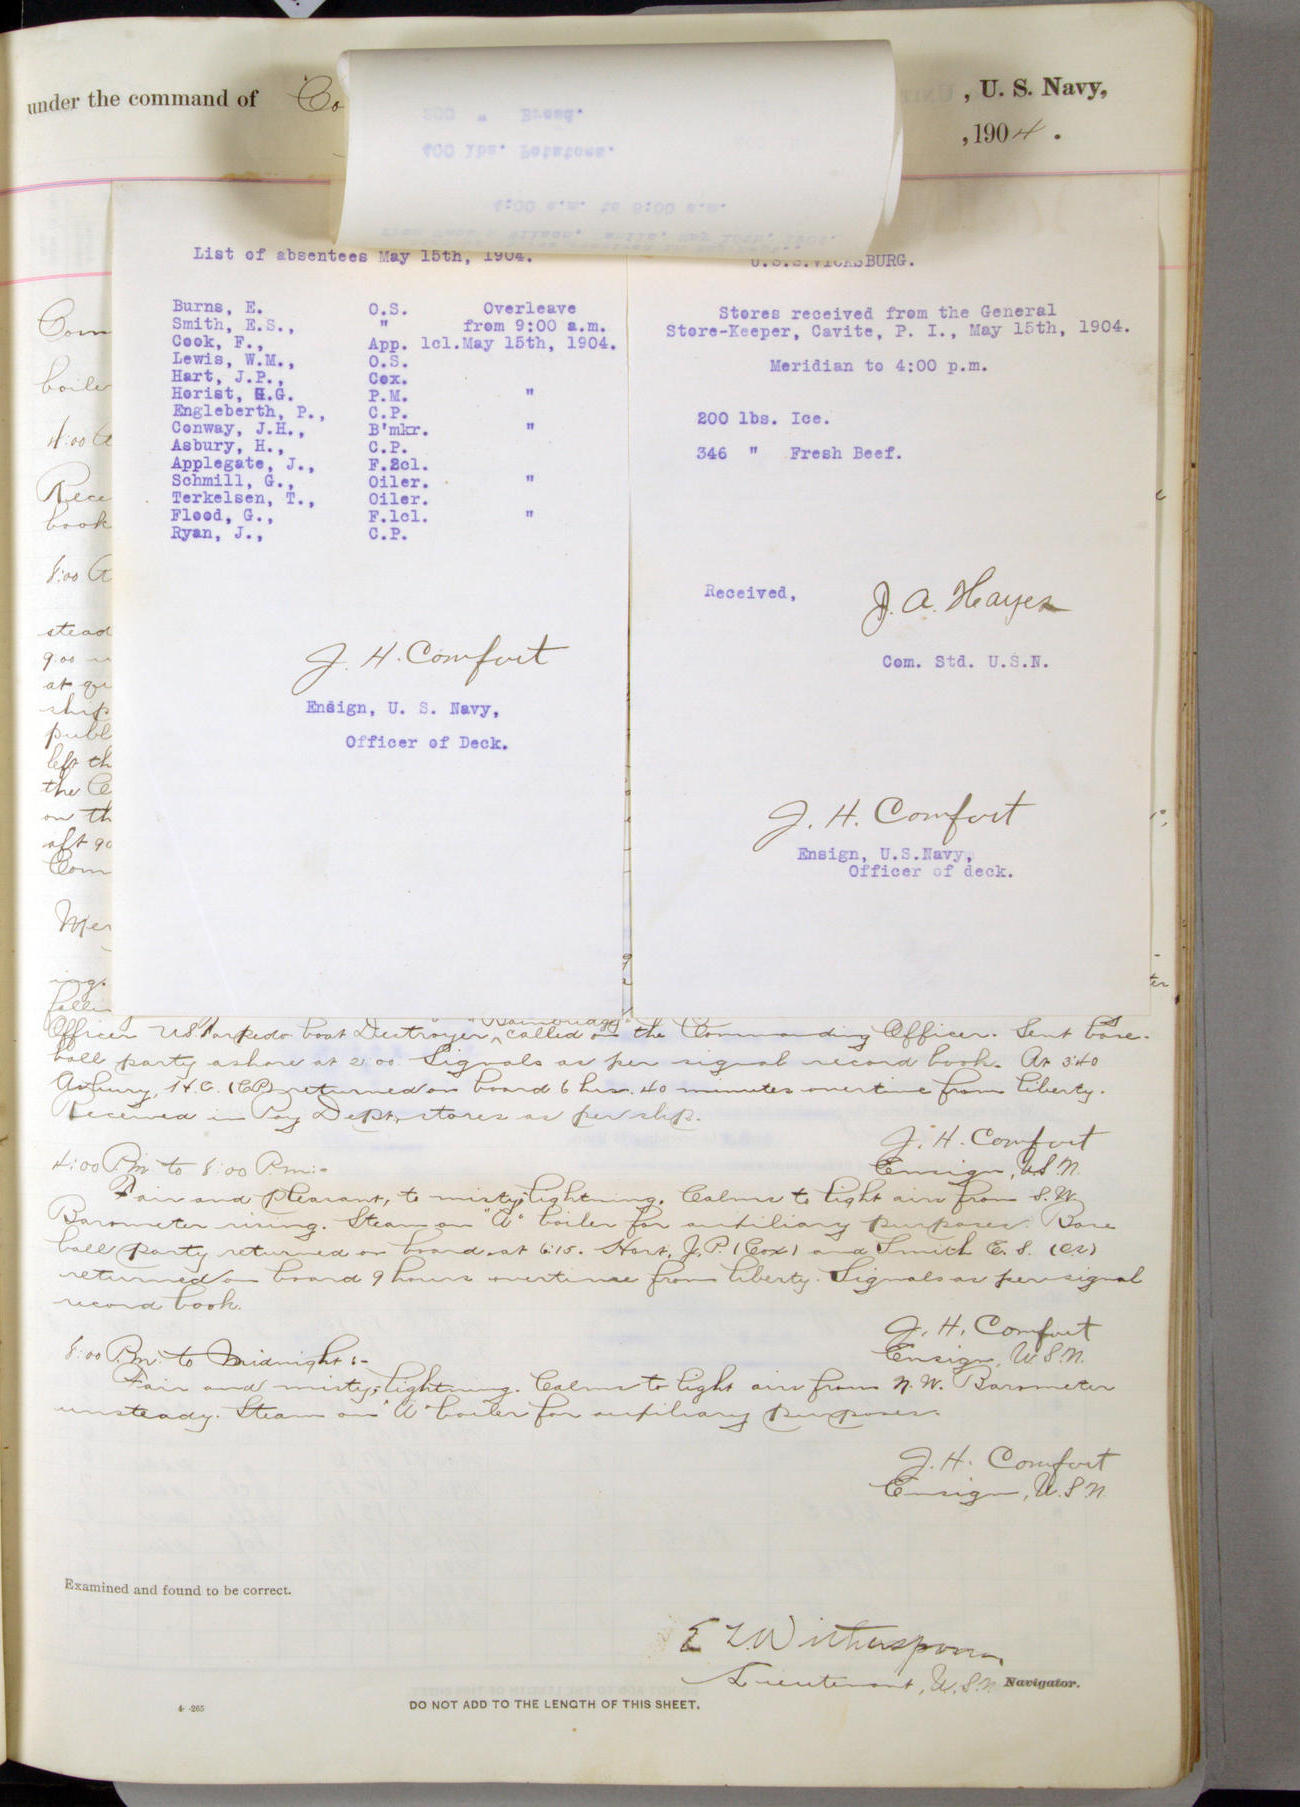 under the command of Co , U. S. Navy,
, 1904.
200 " Bread.
400 lbs. Potatoes.
4:00 a.m. to 8:00 a.m.
List of absentees May 15th, 1904.
Burns, E. O.S. Overleave
Smith, E.S., " from 9:00 a.m.
Cook, F., App. 1cl. May 15th, 1904.
Lewis, W.M., O.S.
Hart, J.P., Cox.
Horist, H.G. P.M. "
Engleberth, P., C.P.
Conway, J.H., B'mkr. "
Asbury, H., C.P.
Applegate, J., F.2cl.
Schmill, G., Oiler. "
Terkelsen, T., Oiler.
Flood, G., F.1cl. "
Ryan, J., C.P.
J. H. Comfort
Ensign, U. S. Navy,
Officer of Deck.
U.S.S.VICKSBURG.
Stores received from the General
Store-Keeper, Cavite, P. I., May 15th, 1904.
Meridian to 4:00 p.m.
200 lbs. Ice.
346 " Fresh Beef.
Received,
J. A. Hayes
Com. Std. U.S.N.
J. H. Comfort
Ensign, U.S.Navy,
Officer of deck.
Com
boiler
4:00 A
Rece
book
8:00 A
stead
9:00
at qu
ship
publ
left th
the C
on th
aft
Com
Mer
ing.
Officer US Torpedo boat Destroyer "Bainbridge" called on the Commanding Officer. Sent base-
ball party ashore at 2:00. Signals as per signal record book. At 3:40
Asbury, H.C. (CP) returned on board 6 hrs. 40 minutes overtime from liberty.
Received in Pay Dept., stores as per slip.
J. H. Comfort
Ensign, U.S.N.
4:00 P.m. to 8:00 P.m:-
Fair and pleasant, to misty; lightning. Calms to light airs from S.W.
Barometer rising. Steam on "A" boiler for auxiliary purposes. Base
ball party returned on board at 6:15. Hart, J.P. (Cox) and Smith E. S. (O.S)
returned on board 9 hours overtime from liberty. Signals as per signal
record book.
J. H. Comfort
Ensign, U.S.N.
8:00 P.m. to Midnight:-
Fair and misty; lightning. Calms to light airs from N.W. Barometer
unsteady. Steam on "A" boiler for auxiliary purposes.
J. H. Comfort
Ensign, U.S.N
Examined and found to be correct.
E L Witherspoon,
Lieutenant, U.S.N. Navigator.
4-265
DO NOT ADD TO THE LENGTH OF THIS SHEET.